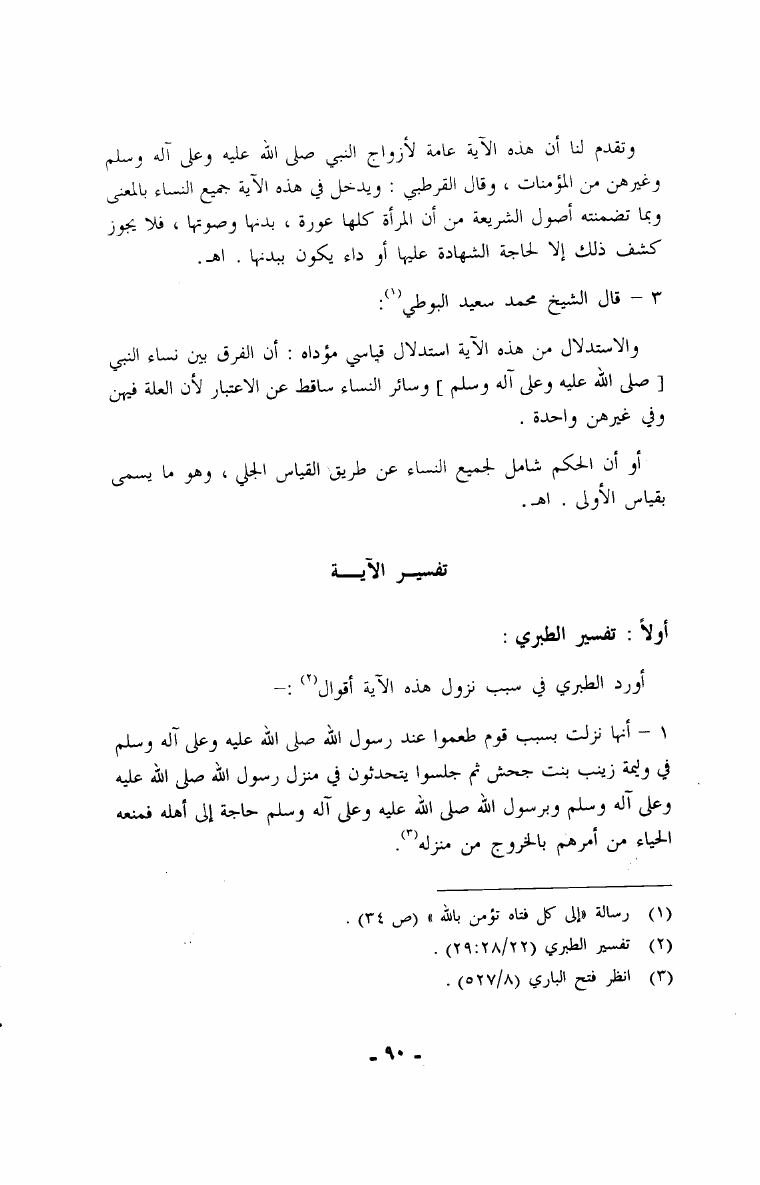 وتقدم لنا أن هذه الآية عامة لأزواج النبي صلى الله عليه وعلى آله وسلم
وغيرهن من المؤمنات ، وقال القرطبي : ويدخل في هذه الآية جميع النساء بالمعنى
وبما تضمنته أصول الشريعة من أن المرأة كلها عورة ، بدنها وصوتها ، فلا يجوز
كشف ذلك إلا لحاجة الشهادة عليها أو داء يكون ببدنها . اهـ.
٣ – قال الشيخ محمد سعيد البوطي(١):
والاستدلال من هذه الآية استدلال قياسي مؤداه : أن الفرق بين نساء النبي
[ صلى الله عليه وعلى آله وسلم ] وسائر النساء ساقط عن الاعتبار لأن العلة فيهن
وفي غيرهن واحدة .
أو أن الحكم شامل لجميع النساء عن طريق القياس الجلي ، وهو ما يسمى
بقياس الأولى . اهـ.
تفسيـر الآيـــة
أولاً : تفسير الطبري :
أورد الطبري في سبب نزول هذه الآية أقوال(٢) :–
١ – أنها نزلت بسبب قوم طعموا عند رسول الله صلى الله عليه وعلى آله وسلم
في وليمة زينب بنت جحش ثم جلسوا يتحدثون في منزل رسول الله صلى الله عليه
وعلى آله وسلم وبرسول الله صلى الله عليه وعلى آله وسلم حاجة إلى أهله فمنعه
الحياء من أمرهم بالخروج من منزله(٣).
(١) رسالة «إلى كل فتاه تؤمن بالله » (ص ٣٤) .
(٢) تفسير الطبري (٢٩:٢٨/٢٢) .
(٣) انظر فتح الباري (٥٢٧/٨) .
- ٩٠ -